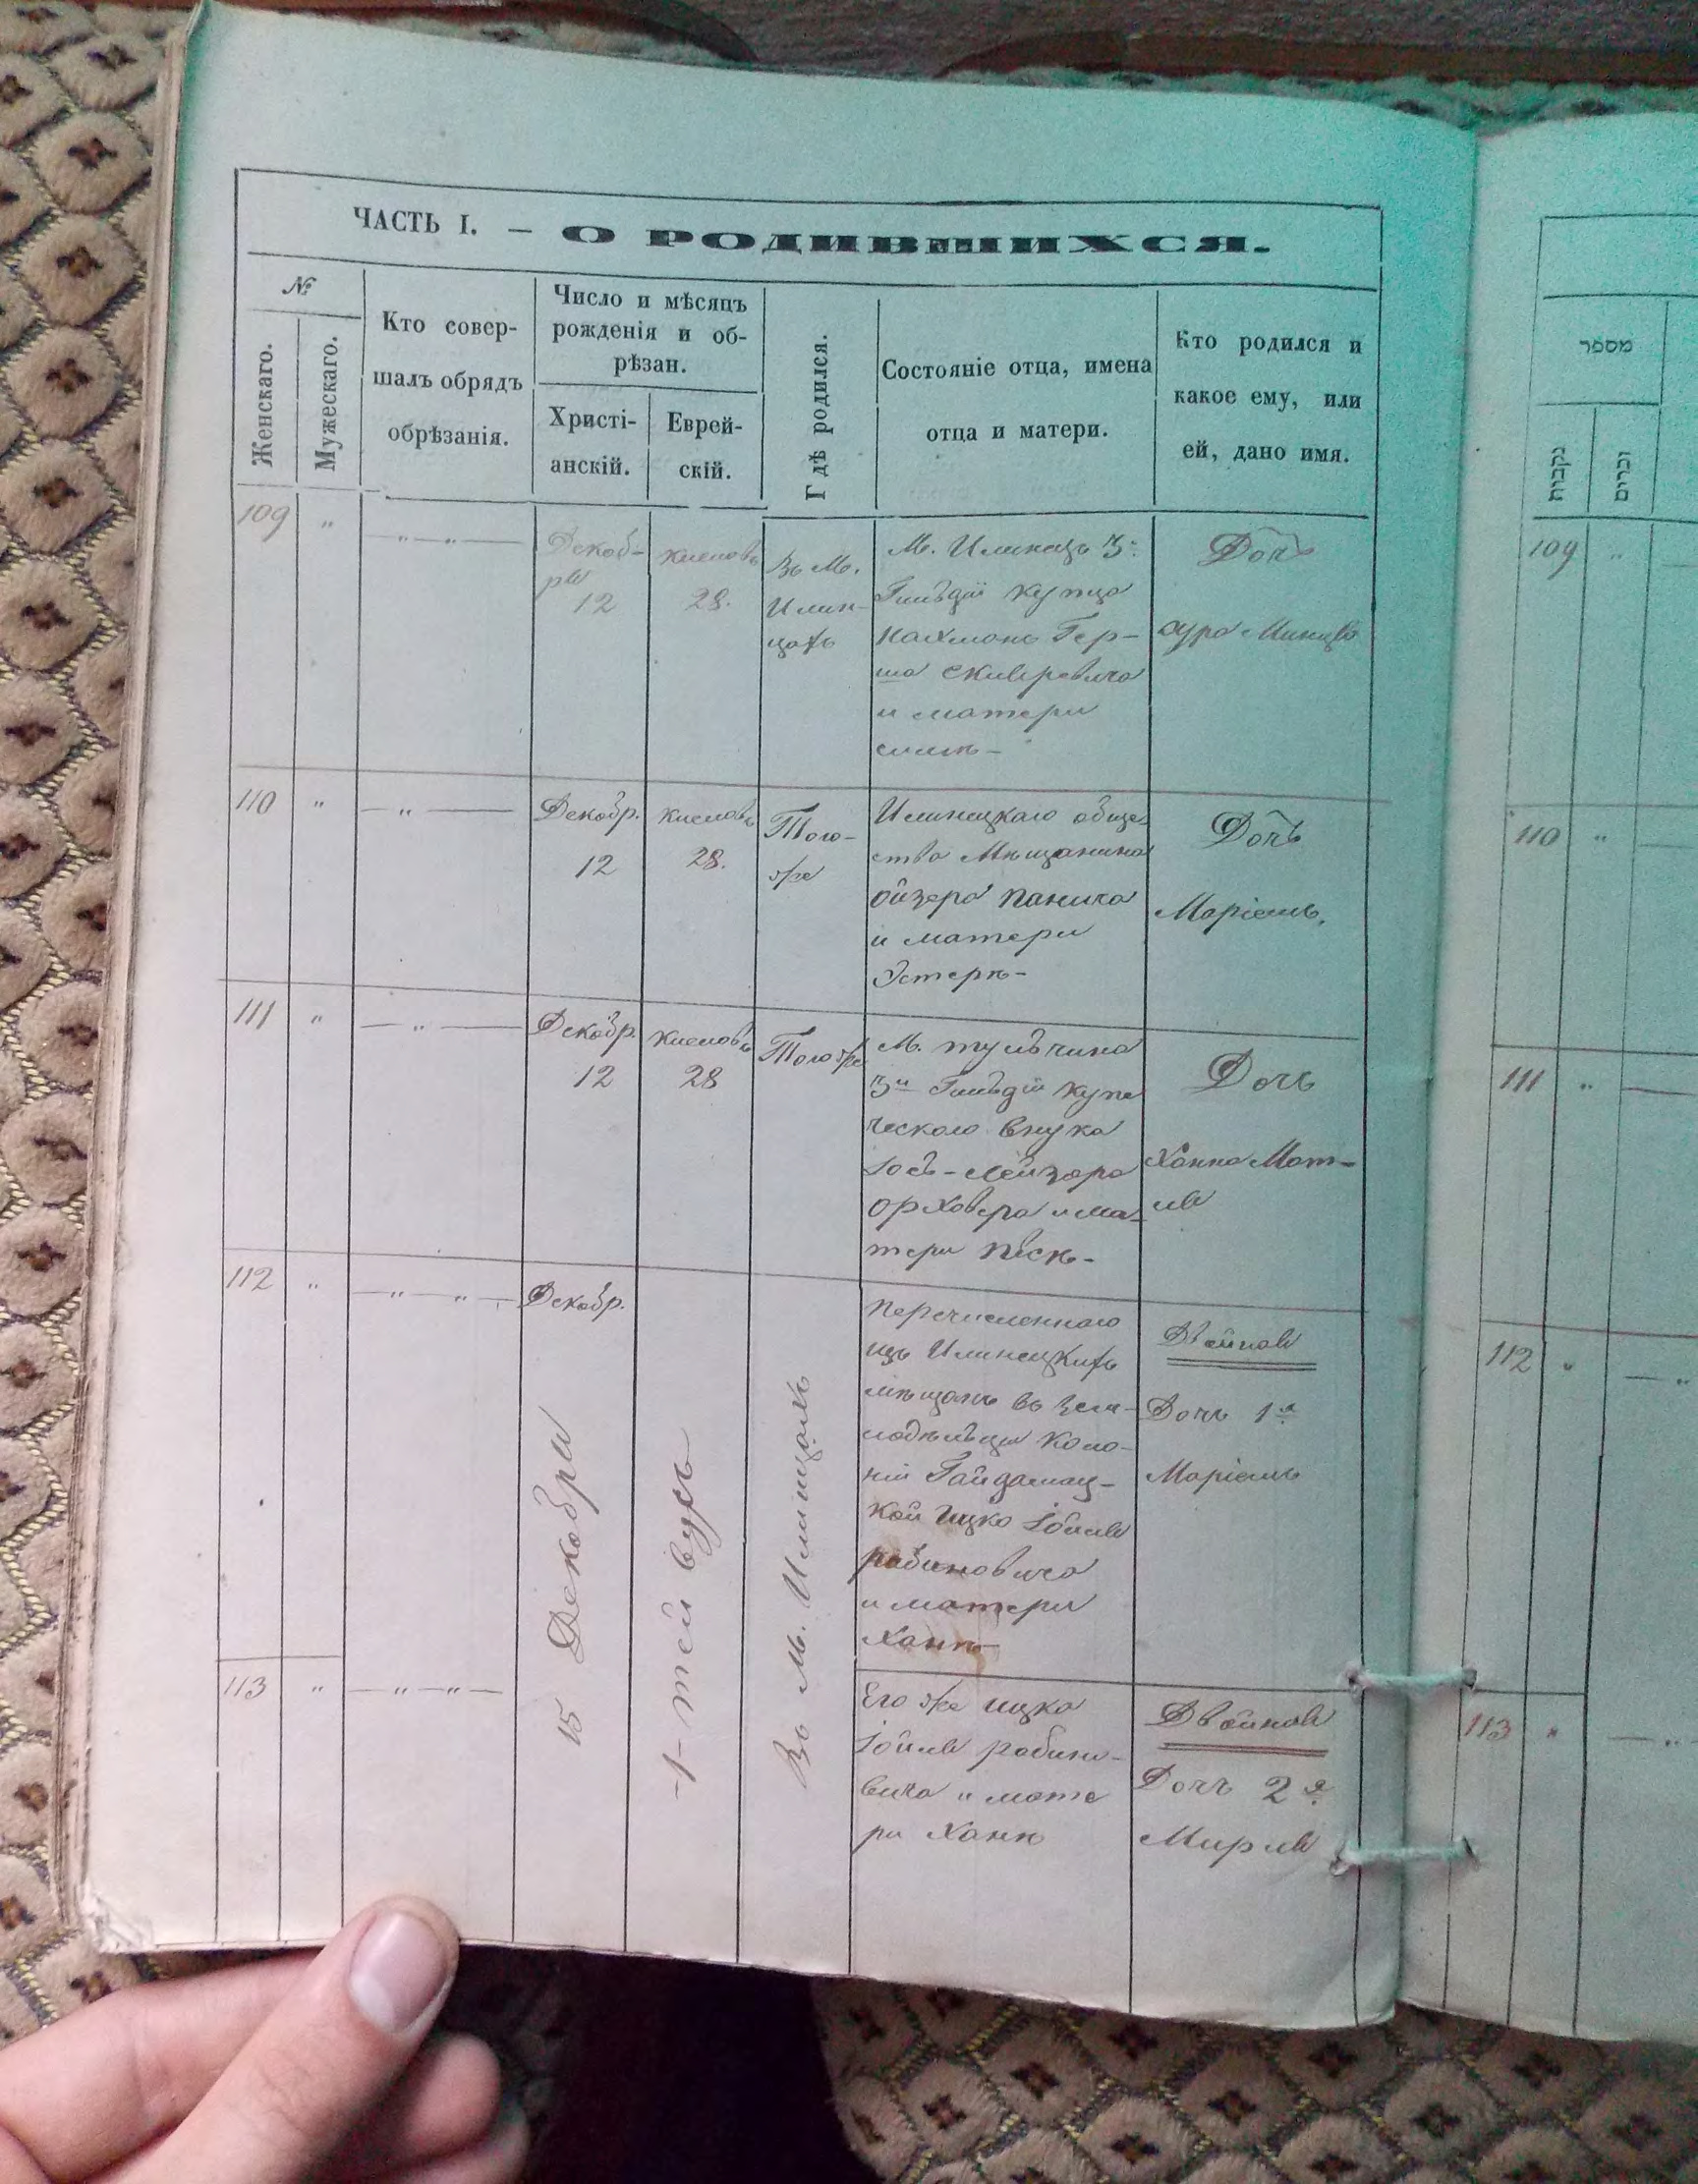 ЧАСТЬ I. — О РОДИВШИХСЯ.
№
Женскаго.
Мужескаго.
Кто совер-
шалъ обрядъ
обрѣзанія.
Число и мѣсяцъ
рожденія и об-
рѣзан.
Христі-
анскій.
Еврей-
скій.
Гдѣ родился.
Состояніе отца, имена
отца и матери.
Кто родился и
какое ему, или
ей, дано имя.
109 " — " —
Декаб-
ря
12
кислевъ
28.
Въ М.
Илин-
цахъ
М. Илинецъ 3й
Гильдіи купца
Нахмонъ Гер-
ша Скверковича
и матери
Дочь
Сура
110 " — " —
Декабр.
12
кислевъ
28.
Того-
же
Илинецкаго обще-
ства Мѣщанина
Ойзера Панича
и матери
Эстерѣ-
Дочь
Маріемъ.
111 " — " —
Декабр.
12
кислевъ
28
Того же
М. Тульчина
3й Гильдіи купе
ческаго внука
Іосъ-Лейзера
Орховера и ма-
тери Песѣ-
Дочь
Ханна Мат-
ля
112 " — " — " —
Декабр.
15 Декабря
1-тей
Въ М. Илинцахъ
Перечисленнаго
изъ Илинецкихъ
мѣщанъ въ зем-
лодѣльцы Коло-
ніи Гайдамац-
кой Ицко Іойля
Рабиновича
и матери
Ханѣ-
Двойня
Дочь 1я
Маріемъ
113 " — " — " —
Его же Ицка
Іойля Рабино-
вича и мате
ри Ханѣ
Двойня
Дочь 2я
Мирля
מספר
נקבות
זכרים
109 "
110 "
111 "
112 "
113 "